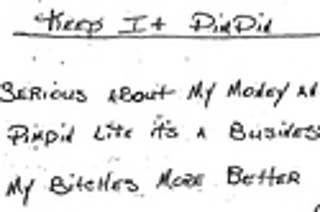 Keep It Pimpin
Serious About My Money
Pimpin Like it's A Business
My Bitches More Better